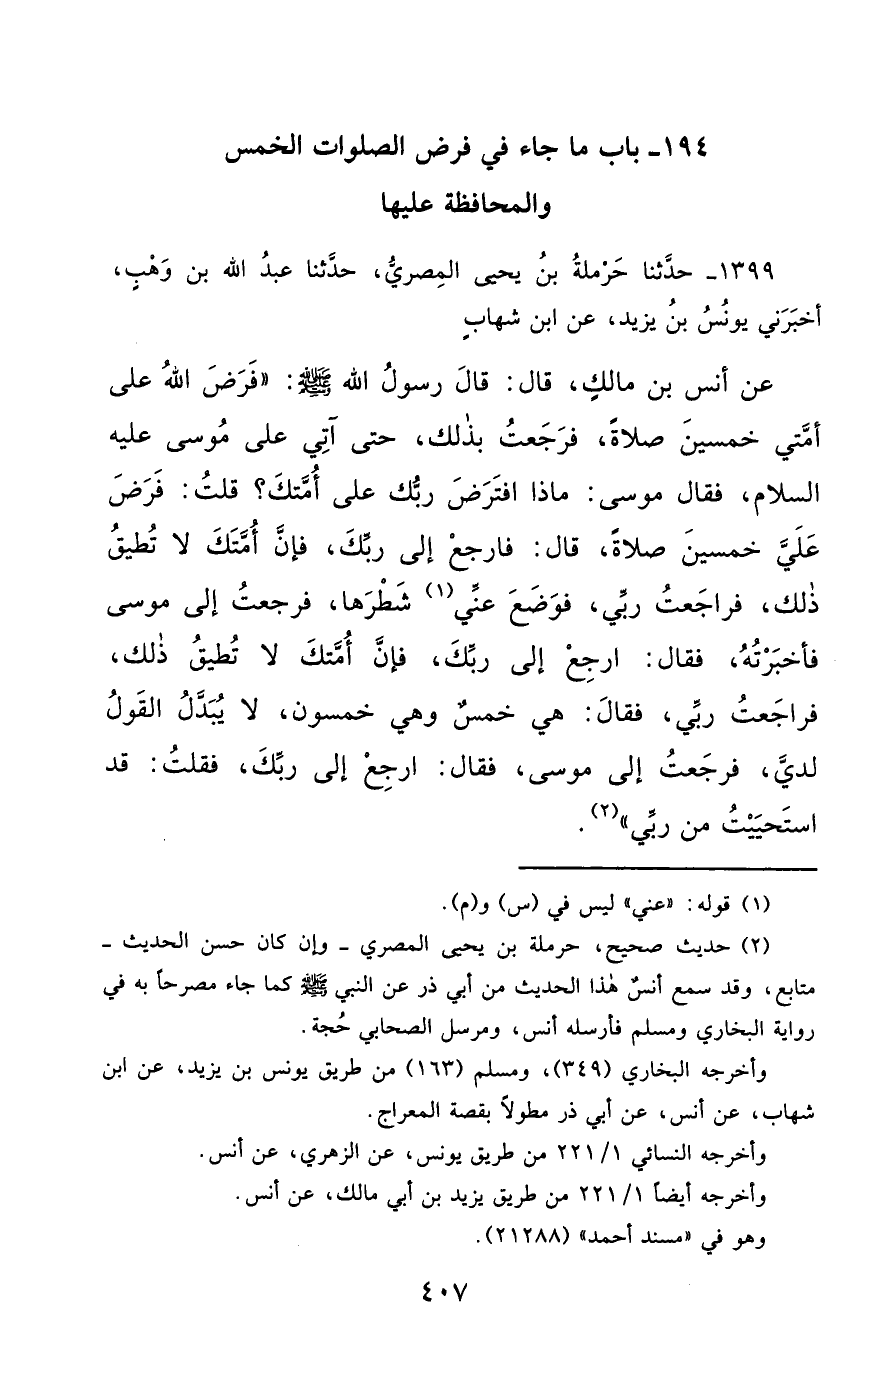 ١٩٤- باب ما جاء في فرض الصلوات الخمس
والمحافظة عليها
١٣٩٩- حدَّثنا حَرْملةُ بنُ يحيى المِصريُّ، حدَّثنا عبدُ الله بن وَهْبٍ،
أخبَرَني يونُسُ بنُ يزيد، عن ابن شهابٍ
عن أنس بن مالكٍ، قال: قالَ رسولُ الله ﷺ: «فَرَضَ اللهُ على
أمَّتي خمسينَ صلاةً، فرَجَعتُ بذٰلك، حتى آتِي على مُوسى عليه
السلام، فقال موسى: ماذا افتَرَضَ ربُّك على أُمَّتكَ؟ قلتُ: فَرَضَ
عَلَيَّ خمسينَ صلاةً، قال: فارجعْ إلى ربِّكَ، فإنَّ أُمَّتَكَ لا تُطيقُ
ذٰلك، فراجَعتُ ربِّي، فوَضَعَ عنِّي(١) شَطْرَها، فرجعتُ إلى موسى
فأخبَرْتُهُ، فقال: ارجِعْ إلى ربِّكَ، فإنَّ أُمَّتكَ لا تُطيقُ ذٰلك،
فراجَعتُ ربِّي، فقالَ: هي خمسٌ وهي خمسون، لا يُبَدَّلُ القَولُ
لديَّ، فرجَعتُ إلى موسى، فقال: ارجِعْ إلى ربِّكَ، فقلتُ: قد
استَحيَيْتُ من ربِّي»(٢).
(١) قوله: «عني» ليس في (س) و(م).
(٢) حديث صحيح، حرملة بن يحيى المصري - وإن كان حسن الحديث -
متابع، وقد سمع أنسٌ هٰذا الحديث من أبي ذر عن النبي ﷺ كما جاء مصرحاً به في
رواية البخاري ومسلم فأرسله أنس، ومرسل الصحابي حُجة.
وأخرجه البخاري (٣٤٩)، ومسلم (١٦٣) من طريق يونس بن يزيد، عن ابن
شهاب، عن أنس، عن أبي ذر مطولاً بقصة المعراج.
وأخرجه النسائي ١/ ٢٢١ من طريق يونس، عن الزهري، عن أنس.
وأخرجه أيضاً ١/ ٢٢١ من طريق يزيد بن أبي مالك، عن أنس.
وهو في «مسند أحمد» (٢١٢٨٨).
٤٠٧